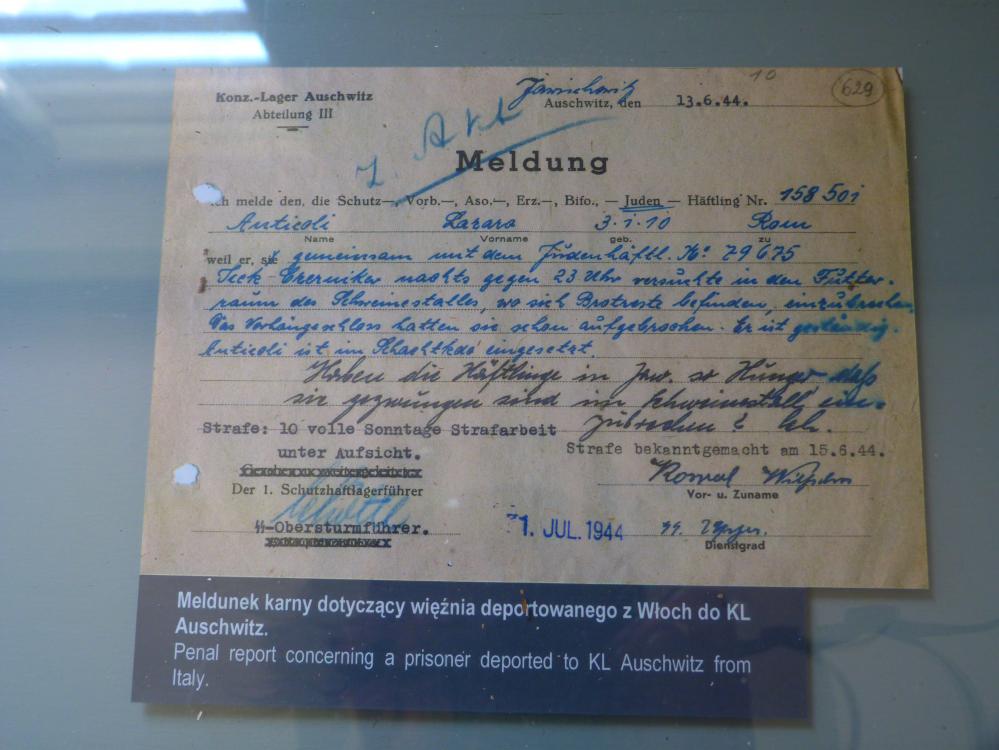 10
629
Konz.-Lager Auschwitz
Abteilung III
Jawischowitz
Auschwitz, den 13.6.44.
z. Akt
Meldung
Ich melde den, die Schutz—, Vorb.—, Aso.—, Erz.—, Bifo., — Juden — Häftling Nr. 158 501
Anticoli Lazaro 3.1.10 Rom
Name Vorname geb. zu
weil er, sie gemeinsam mit dem Judenhäftl. No: 79675
Czerniker nachts gegen 23 Uhr versuchte in den Futter-
raum des Schweinestalles, wo sich Brotreste befinden, einzubrechen
Das Vorhängeschloss hatten sie schon aufgebrochen. Er ist geständig.
Anticoli ist im Schachtkdo eingesetzt.
Haben die Häftlinge in Jaw. so Hunger daß
sie gezwungen sind im Schweinestall ein-
zubrechen?
Strafe: 10 volle Sonntage Strafarbeit
unter Aufsicht.
Strafe bekanntgemacht am 15.6.44.
Der 1. Schutzhaftlagerführer
Vor- u. Zuname
SS-Obersturmführer.
1. JUL. 1944
Dienstgrad
Meldunek karny dotyczący więźnia deportowanego z Włoch do KL
Auschwitz.
Penal report concerning a prisoner deported to KL Auschwitz from
Italy.